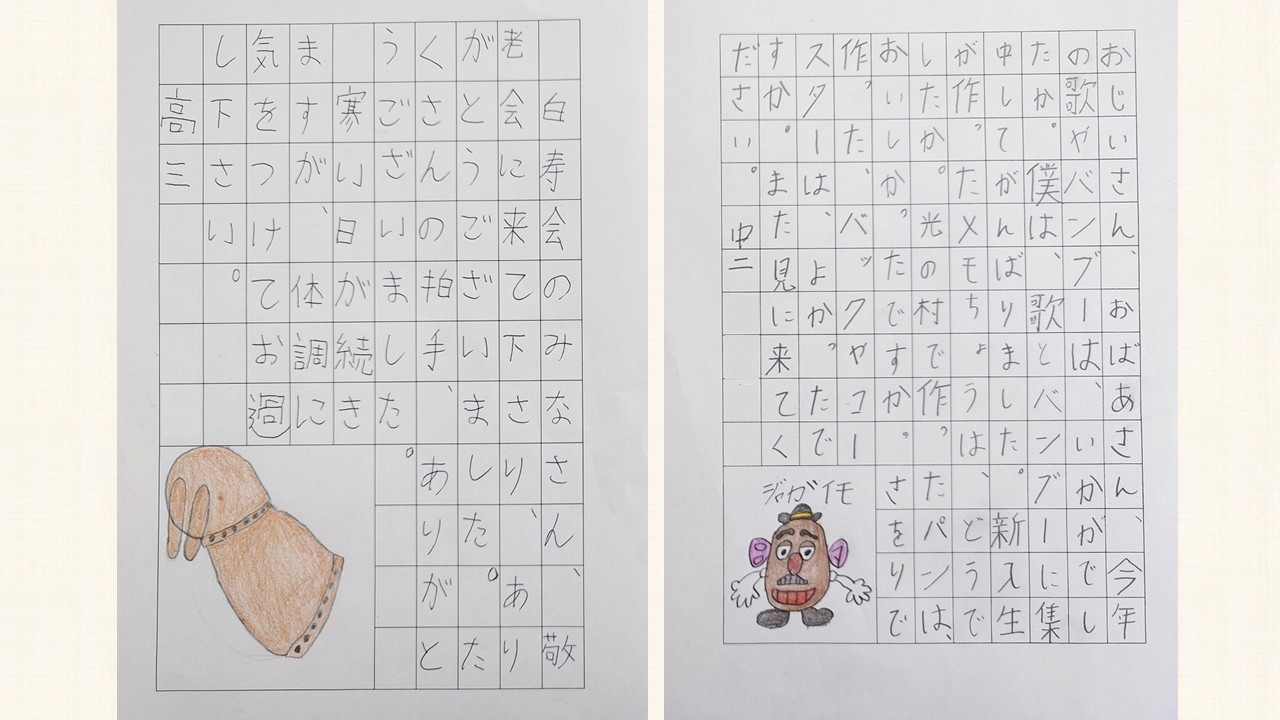 白寿会のみなさん、敬
老会に来て下さり、あり
がとうございました。た
くさんの拍手、ありがと
うございました。
寒い日が続き
ますが、体調に
気をつけてお過
し下さい。
高三
おじいさん、おばあさん、今年
の歌やバンブーは、いかがでし
たか。僕は、歌とバンブーに集
中してがんばりました。新入生
が作ったメモちょうは、どうで
したか。光の村で作ったパンは、
おいしかったですか。さをりで
作った、バックやコー
スターは、よかったで
すか。また見に来てく
ださい。中二
ジャガイモ